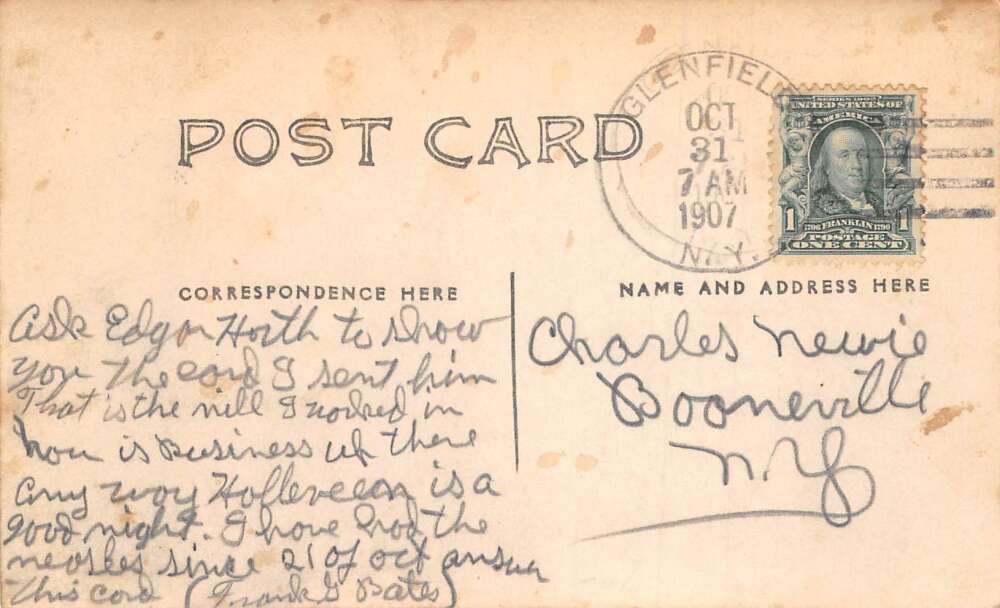 POST CARD
GLENFIELD
OCT
31
7 AM
1907
N.Y.
SERIES 1902
UNITED STATES OF
AMERICA
1 1
1706 FRANKLIN 1790
POSTAGE
ONE CENT
CORRESPONDENCE HERE
Ask Edgar Horth to show
you the card I sent him
That is the mill I worked in
how is Business up there
any way Holleveeon is a
good night. I have had the
measles since 21 of oct answer
this card (Frank G Bates)
NAME AND ADDRESS HERE
Charles
Booneville
N.Y.